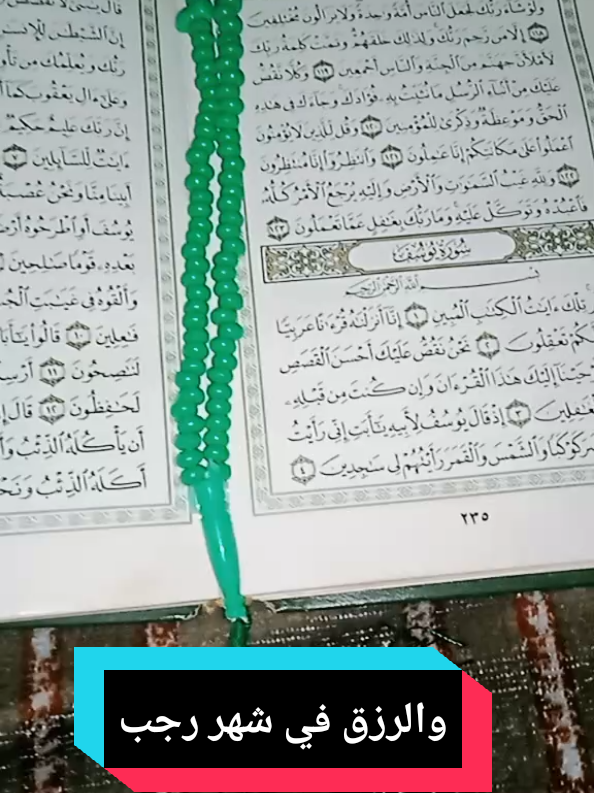 ولوشاء ربك لجعل الناس أمة وحدة ولا يزالون مختلفين
١١٨ إلا من رحم ربك ولذلك خلقهم وتمت كلمة ربك
لأملأن جهنم من الجنة والناس أجمعين ١١٩ وكلا نقص
عليك من أنباء الرسل ما نثبت به فؤادك وجاءك في هذه
الحق وموعظة وذكرى للمؤمنين ١٢٠ وقل للذين لا يؤمنون
اعملوا على مكانتكم إنا عملون ١٢١ وانتظروا إنا منتظرون
١٢٢ ولله غيب السموت والأرض وإليه يرجع الأمر كله
فاعبده وتوكل عليه وما ربك بغفل عما تعملون ١٢٣
سورة يوسف
بسم الله الرحمن الرحيم
تلك ءايت الكتب المبين ١ إنا أنزلنه قرءنا عربيا
لعلكم تعقلون ٢ نحن نقص عليك أحسن القصص
أوحينا إليك هذا القرءان وإن كنت من قبله
الغفلين ٣ إذ قال يوسف لأبيه يأبت إني رأيت
عشر كوكبا والشمس والقمر رأيتهم لي سجدين ٤
٢٣٥
إن الشيطن للإنسن
ربك ويعلمك من تأويل
وعلى ءال يعقوب كما
إن ربك عليم حكيم
ءايت للسائلين ٧
أبينا منا ونحن عصبة
يوسف أو اطرحوه أرضا
بعده قوما صلحين
وألقوه في غيبت الجب
فعلين ١٠ قالوا يأبانا
لنصحون ١١ أرسله
لحفظون ١٢ قال إني
أن يأكله الذئب وأنتم
أكله الذئب ونحن
والرزق في شهر رجب